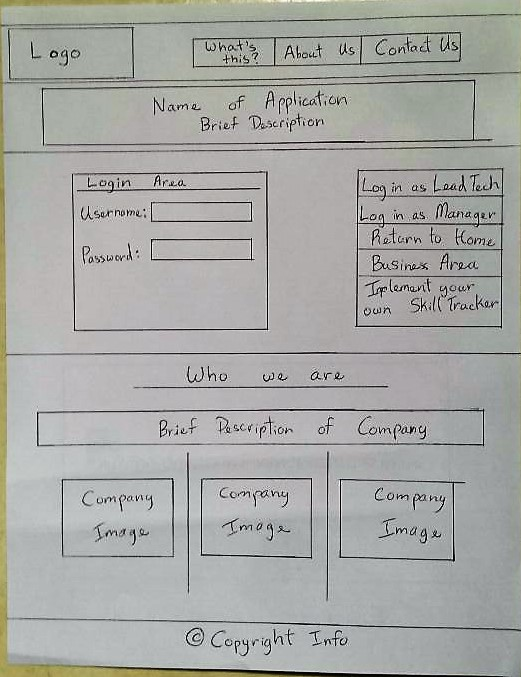 Logo
What's this?
About Us
Contact Us
Name of Application
Brief Description
Login Area
Username:
Password:
Log in as Lead Tech
Log in as Manager
Return to Home
Business Area
Implement your
own Skill Tracker
Who we are
Brief Description of Company
Company
Image
Company
Image
Company
Image
© Copyright Info